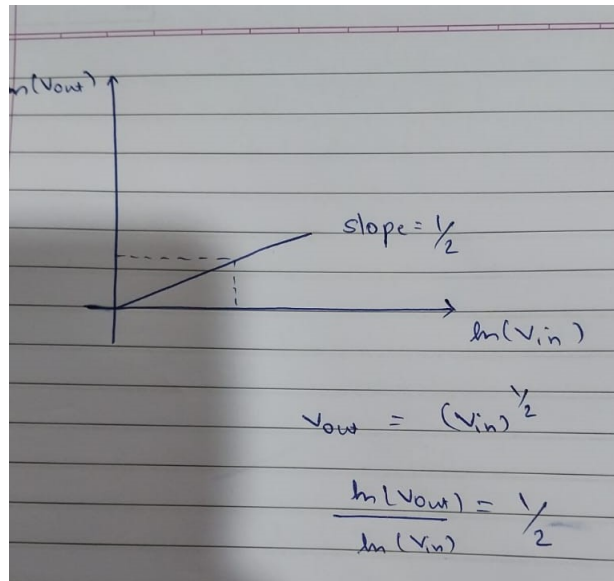 ln(Vout)
slope = 1/2
ln(Vin)
Vout = (Vin)^1/2
ln(Vout) / ln(Vin) = 1/2